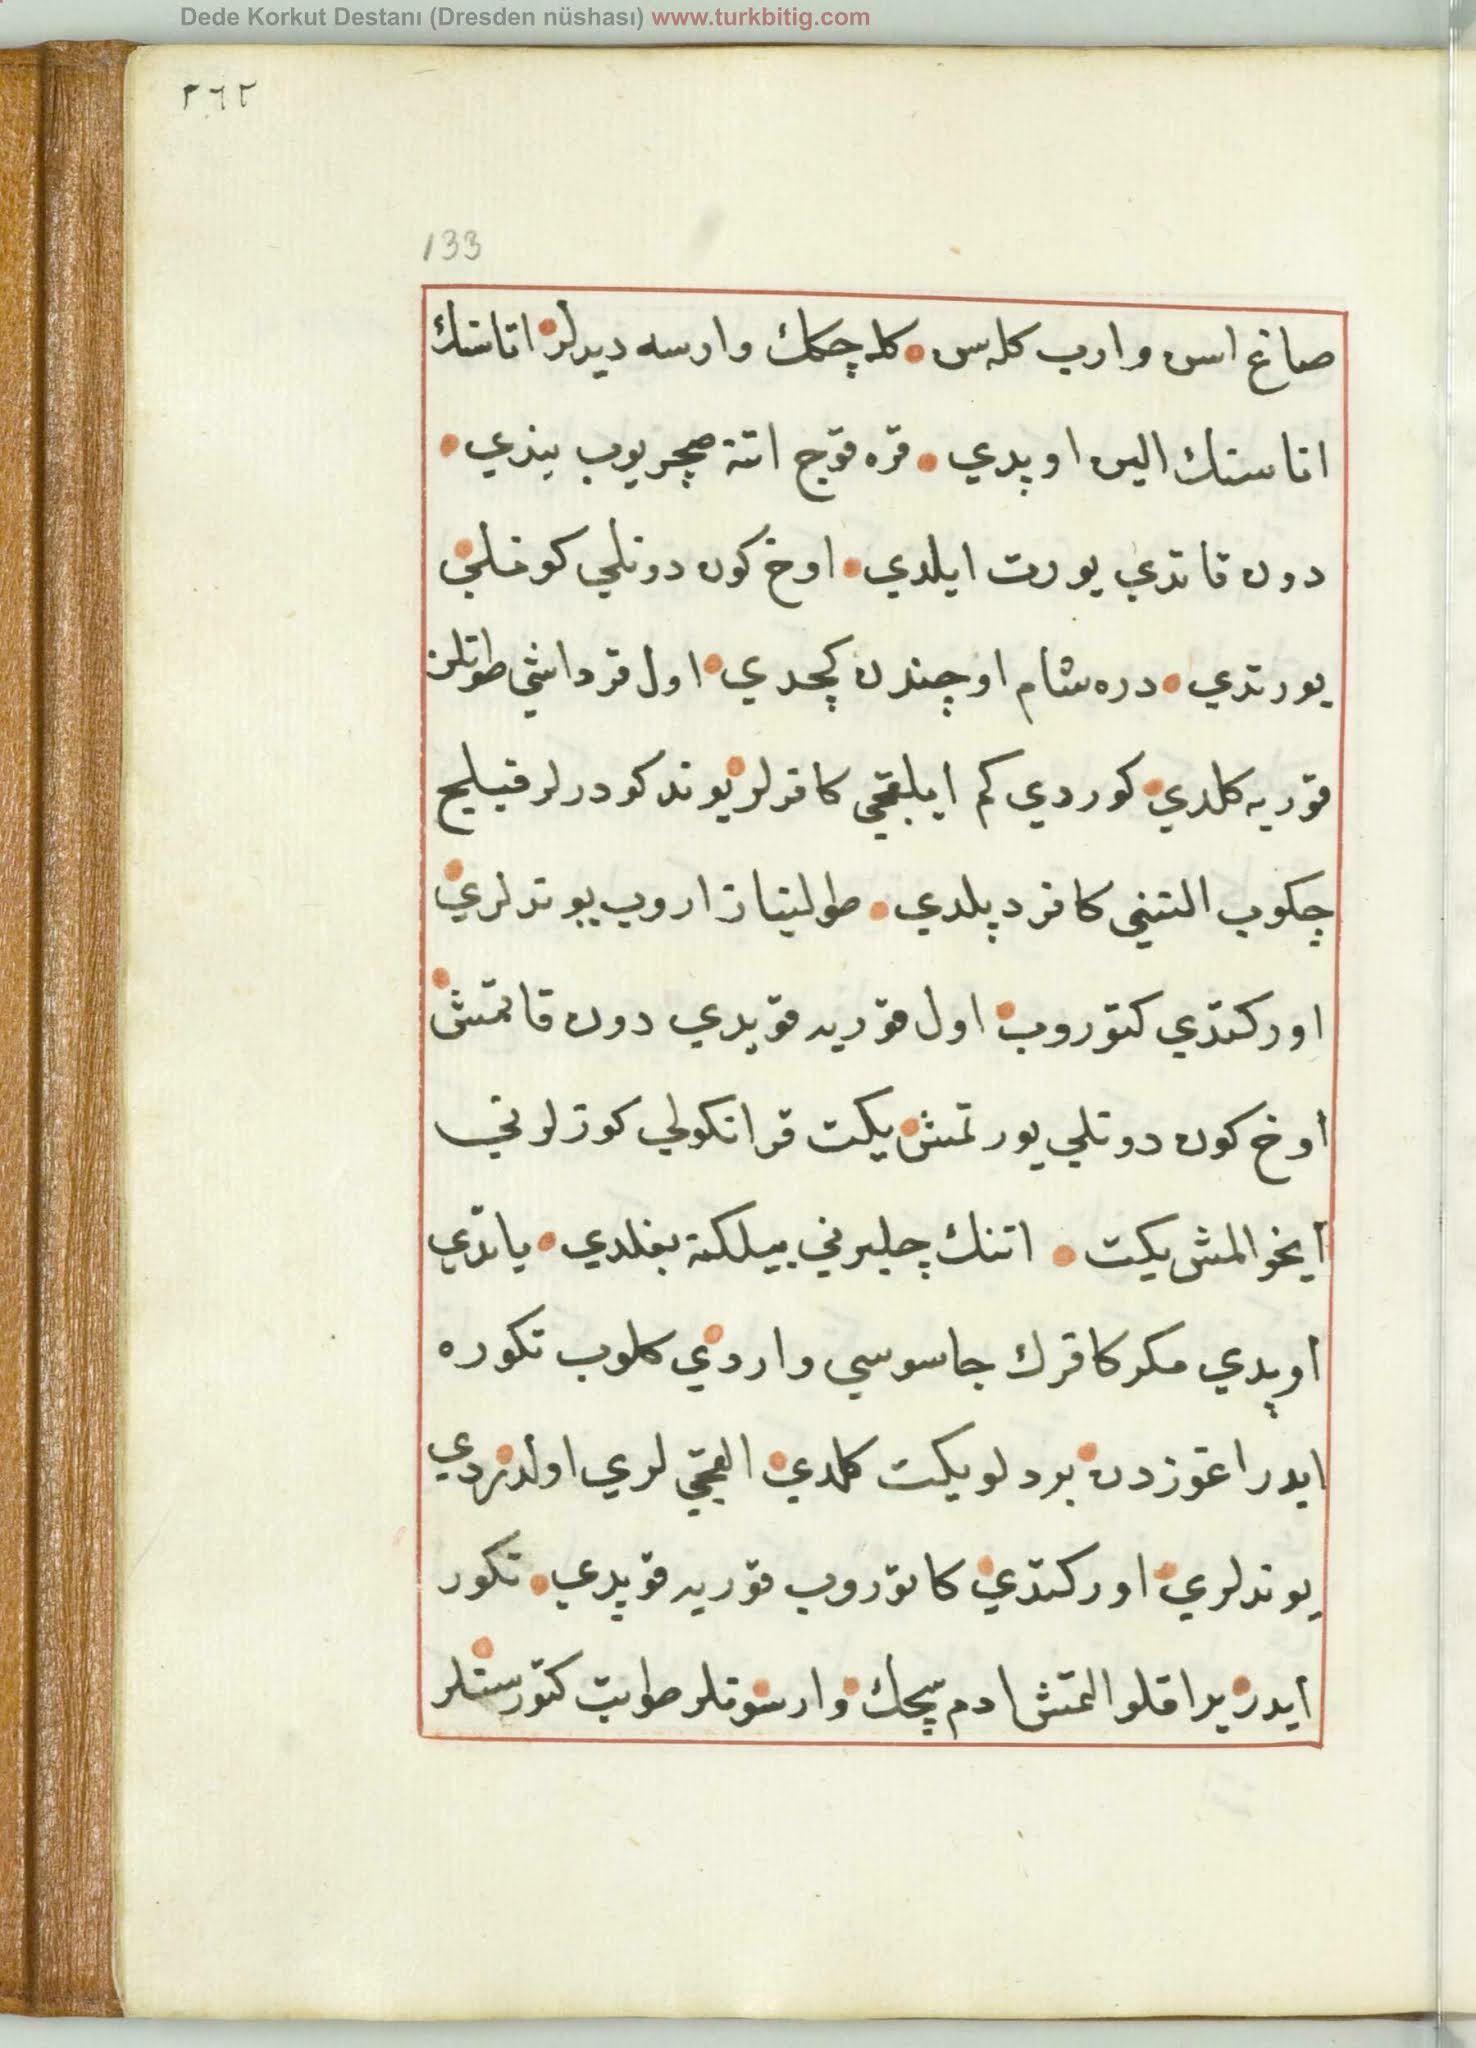 Dede Korkut Destanı (Dresden nüshası) www.turkbitig.com
٢٦٢
133
صاغ اسن وارب كله سن كله چكك وارسه ديدلر اتاسنك
اناسنك الين اوپدي قره قوج اتنه صچريوب بيندي
دون قاتدي يورت ايلدي اوخ كون دونلي كونلي
يورتدي دره شام اوچندن كچدي اول قرداشي طوتلن
قوريه كلدي كوردي كم ايلقچي كافرلر يوند كودرلر قيليچ
چكوب التني كافر دپلدي طولبناز اروب يوندلري
اوركتدي كتوروب اول قوريه قويدي دون قاتمش
اوخ كون دونلي يورتمش يكت قرانكولي كوزلوني
ايخو المش يكت اتنك چلبرني بيلكنه بغلدي ياتدي
اويدي مكر كافرك جاسوسي واردي كلوب تكوره
ايدر اغوزدن بر دلو يكت كلدي القچي لري اولدردي
يوندلري اوركتدي كاتوروب قوريه قويدي تكور
ايدر يراقلو التمش ادم سچك وارسونلر طوتب كتورسنلر